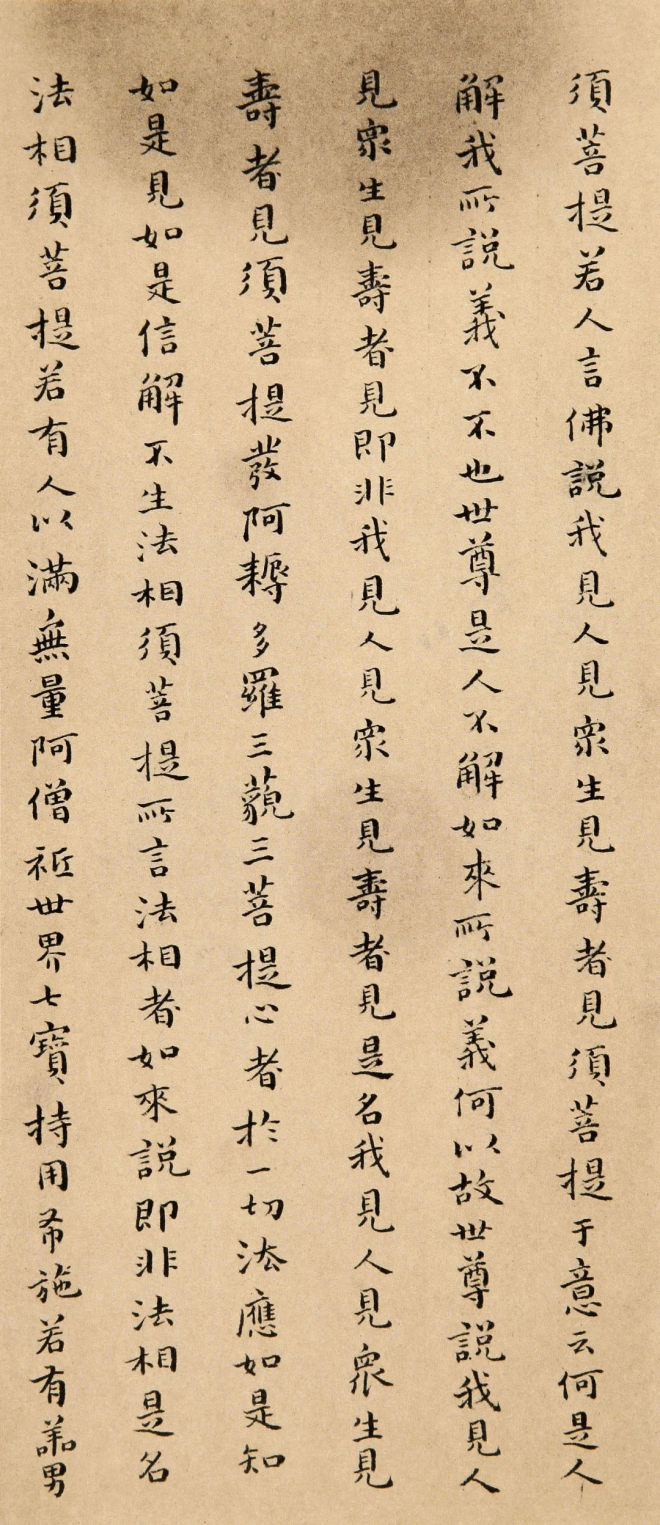 須菩提若人言佛說我見人見衆生見壽者見須菩提于意云何是人
解我所說義不不也世尊是人不解如來所說義何以故世尊說我見人
見衆生見壽者見即非我見人見衆生見壽者見是名我見人見衆生見
壽者見須菩提發阿耨多羅三藐三菩提心者於一切法應如是知
如是見如是信解不生法相須菩提所言法相者如來說即非法相是名
法相須菩提若有人以滿無量阿僧祇世界七寶持用布施若有善男